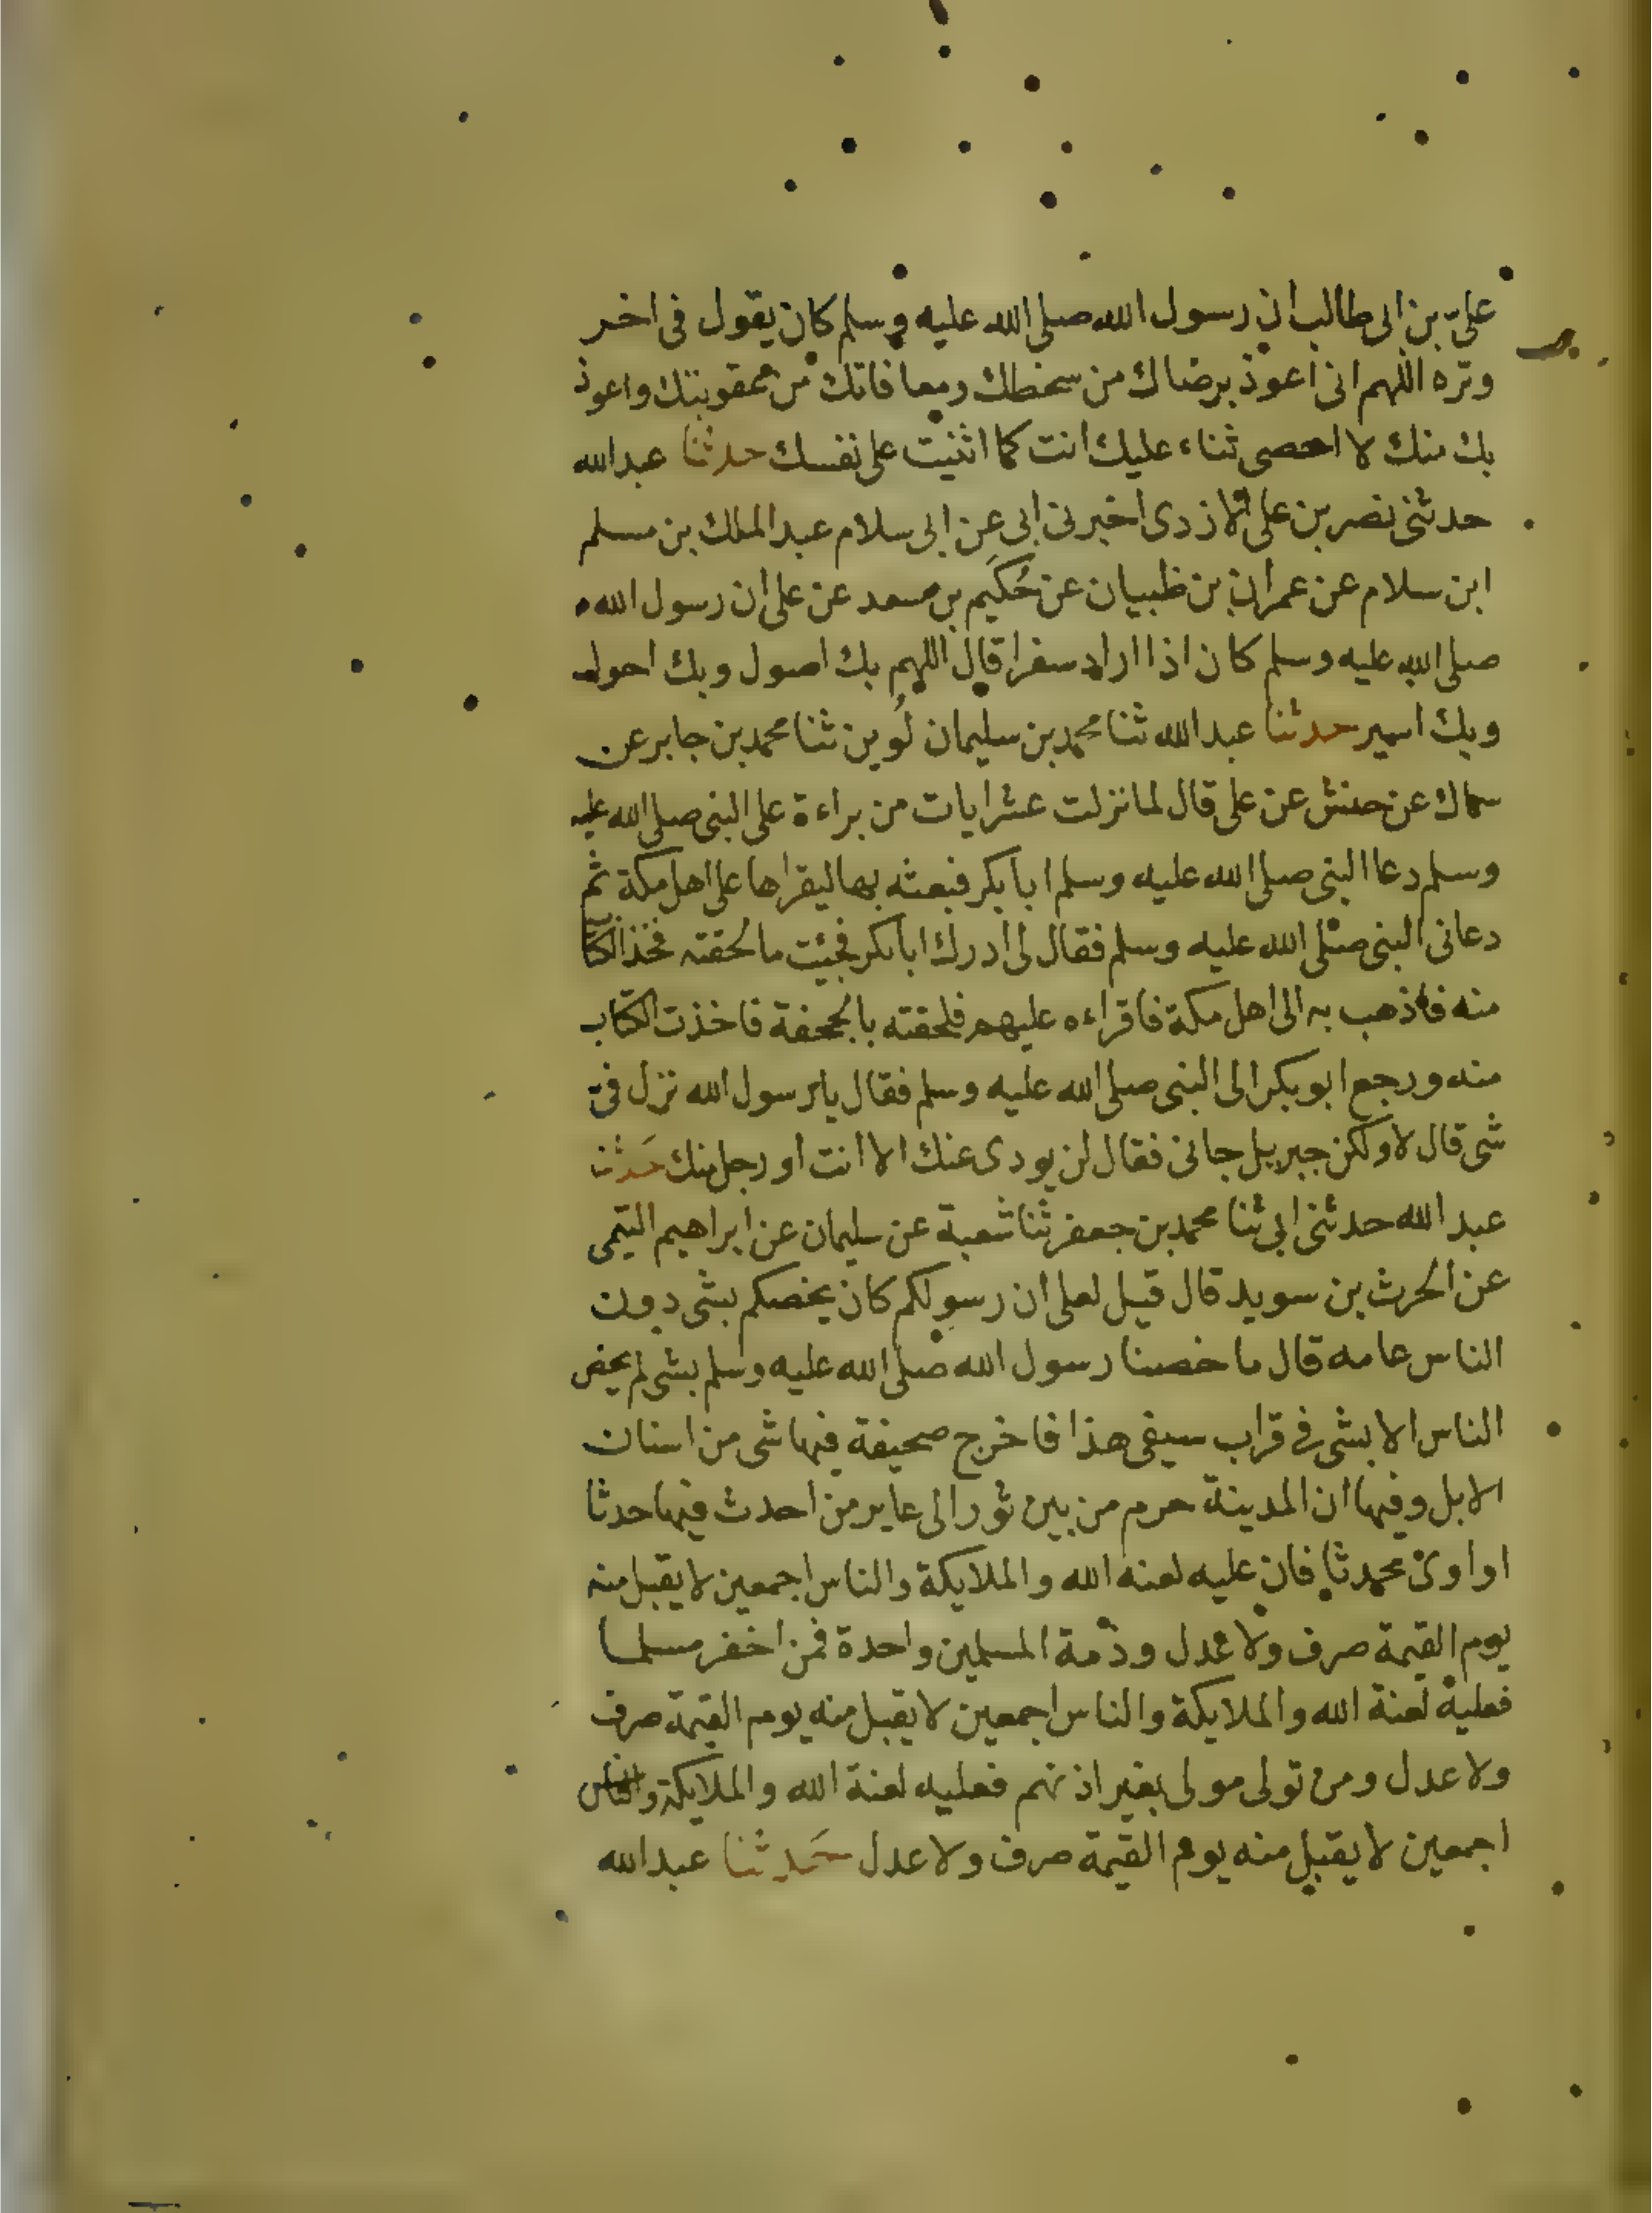 علي بن ابى طالب ان رسول الله صلى الله عليه وسلم كان يقول فى اخر
وتره اللهم انى اعوذ برضاك من سخطك ومعافاتك من عقوبتك واعوذ
بك منك لا احصى ثناء عليك انت كما اثنيت على نفسك حدثنا عبد الله
حدثنى نصر بن على الازدى اخبرنى ابى عن ابى سلام عبد الملك بن مسلم
ابن سلام عن عمران بن ظبيان عن حُكَيم بن سعد عن على ان رسول الله
صلى الله عليه وسلم كان اذا اراد سفرا قال اللهم بك اصول وبك احول
وبك اسير حدثنا عبد الله ثنا محمد بن سليمان لُوين ثنا محمد بن جابر عن
سماك عن حنش عن على قال لما نزلت عشر ايات من براءة على النبى صلى الله عليه
وسلم دعا النبى صلى الله عليه وسلم ابا بكر فبعثه بها ليقراها على اهل مكة ثم
دعانى النبى صلى الله عليه وسلم فقال لى ادرك ابا بكر فحيث ما لحقته فخذ الكتاب
منه فاذهب به الى اهل مكة فاقراءه عليهم فلحقته بالجحفة فاخذت الكتاب
منه ورجع ابو بكر الى النبى صلى الله عليه وسلم فقال يا رسول الله نزل فى
شى قال لا ولكن جبريل جانى فقال لن يودى عنك الا انت او رجل منك حدثنا
عبد الله حدثنى ابى ثنا محمد بن جعفر ثنا شعبة عن سليمان عن ابراهيم التيمى
عن الحرث بن سويد قال قيل لعلى ان رسولكم كان يخصكم بشى دون
الناس عامه قال ما خصنا رسول الله صلى الله عليه وسلم بشى لم يخص
الناس الا بشى فى قراب سيفى هذا فاخرج صحيفة فيها شى من اسنان
الابل وفيها ان المدينة حرم من بين ثور الى عاير من احدث فيها حدثا
او اوى محدثا فان عليه لعنه الله والملايكة والناس اجمعين لا يقبل منه
يوم القيمة صرف ولا عدل وذمة المسلمين واحدة فمن اخفر مسلما
فعليه لعنة الله والملايكة والناس اجمعين لا يقبل منه يوم القيمة صرف
ولا عدل ومن تولى مولى بغير اذنهم فعليه لعنة الله والملايكة والناس
اجمعين لا يقبل منه يوم القيمة صرف ولا عدل حَدثنا عبد الله